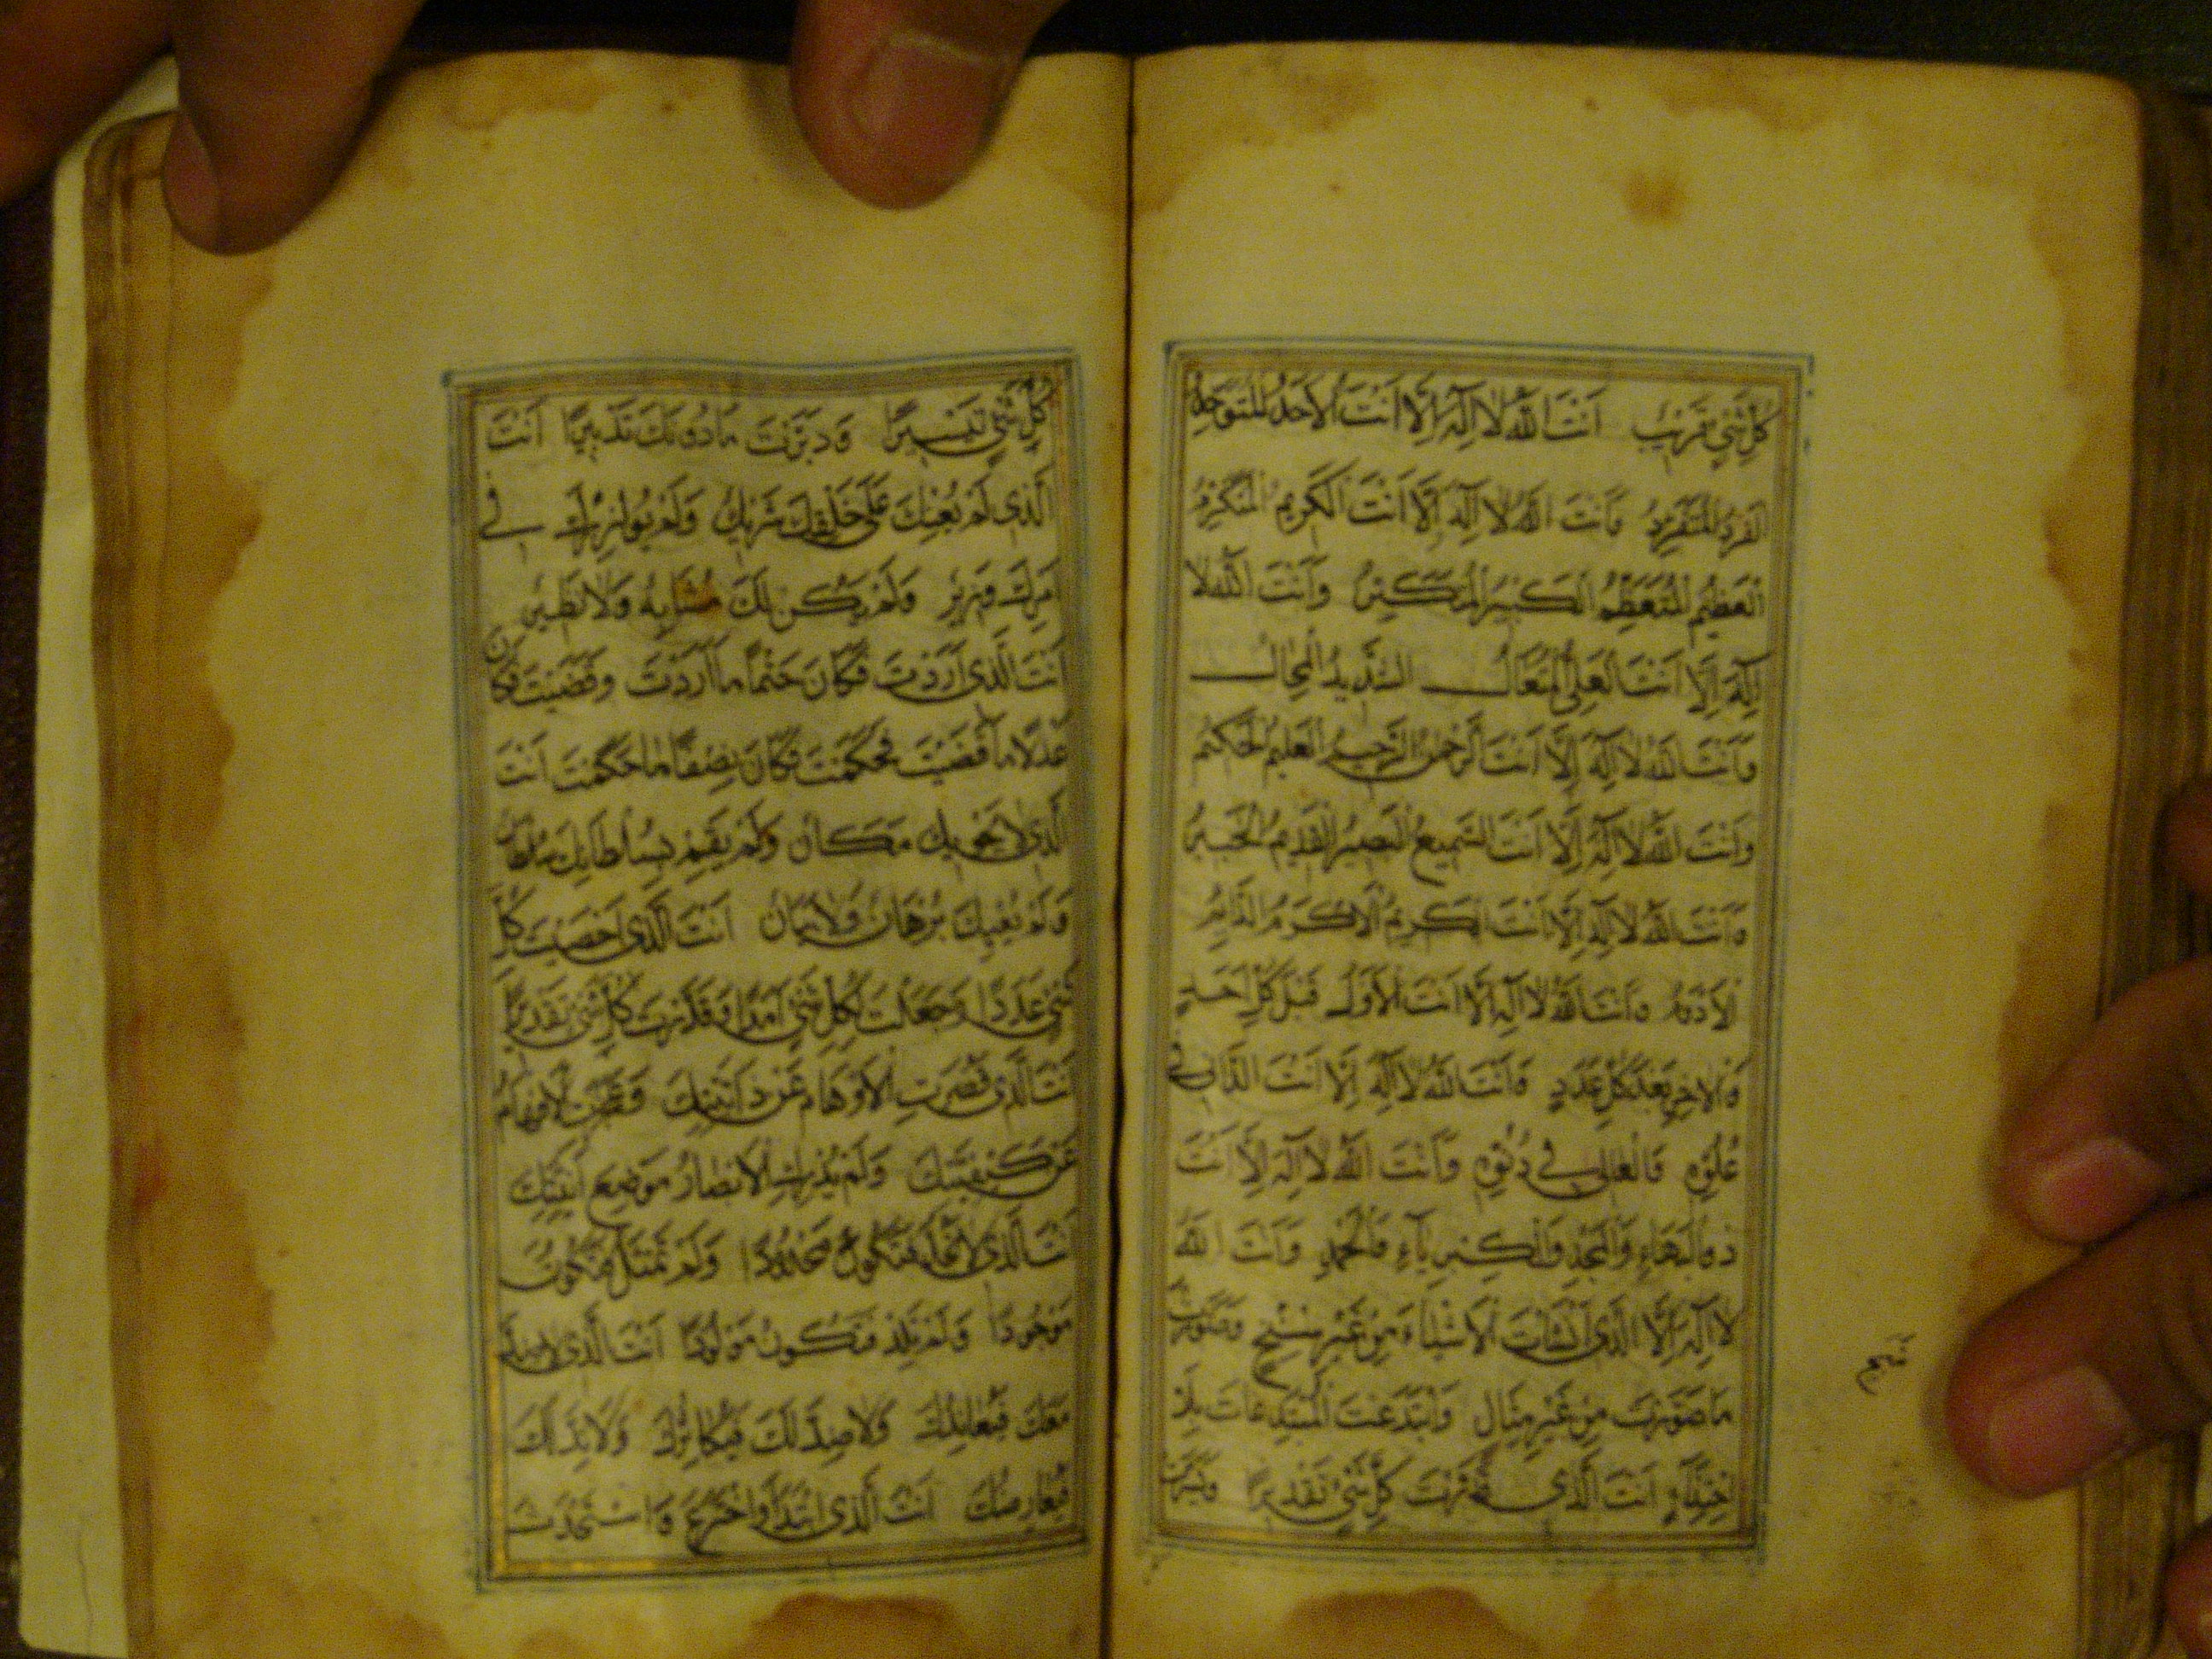 كُلِّ شَيْءٍ رَقِيبٌ أَنْتَ اللهُ لَا إِلٰهَ إِلَّا أَنْتَ الْأَحَدُ الْمُتَوَحِّدُ
الْفَرْدُ الْمُتَفَرِّدُ وَأَنْتَ اللهُ لَا إِلٰهَ إِلَّا أَنْتَ الْكَرِيمُ الْمُتَكَرِّمُ
الْعَظِيمُ الْمُتَعَظِّمُ الْكَبِيرُ الْمُتَكَبِّرُ وَأَنْتَ اللهُ لَا
إِلٰهَ إِلَّا أَنْتَ الْعَلِيُّ الْمُتَعَالِ الشَّدِيدُ الْمِحَالِ
وَأَنْتَ اللهُ لَا إِلٰهَ إِلَّا أَنْتَ الرَّحْمٰنُ الرَّحِيمُ الْعَلِيمُ الْحَكِيمُ
وَأَنْتَ اللهُ لَا إِلٰهَ إِلَّا أَنْتَ السَّمِيعُ الْبَصِيرُ الْقَدِيمُ الْخَبِيرُ
وَأَنْتَ اللهُ لَا إِلٰهَ إِلَّا أَنْتَ الْكَرِيمُ الْأَكْرَمُ الدَّائِمُ
الْأَدْوَمُ وَأَنْتَ اللهُ لَا إِلٰهَ إِلَّا أَنْتَ الْأَوَّلُ قَبْلَ كُلِّ أَحَدٍ
وَالْآخِرُ بَعْدَ كُلِّ عَدَدٍ وَأَنْتَ اللهُ لَا إِلٰهَ إِلَّا أَنْتَ الدَّانِي فِي
عُلُوِّهِ وَالْعَالِي فِي دُنُوِّهِ وَأَنْتَ اللهُ لَا إِلٰهَ إِلَّا أَنْتَ
ذُو الْبَهَاءِ وَالْمَجْدِ وَالْكِبْرِيَاءِ وَالْحَمْدِ وَأَنْتَ اللهُ
لَا إِلٰهَ إِلَّا الَّذِي أَنْشَأْتَ الْأَشْيَاءَ مِنْ غَيْرِ سِنْخٍ وَصَوَّرْتَ
مَا صَوَّرْتَ مِنْ غَيْرِ مِثَالٍ وَابْتَدَعْتَ الْمُبْتَدَعَاتِ بِلَا
احْتِذَاءٍ أَنْتَ الَّذِي قَدَّرْتَ كُلَّ شَيْءٍ تَقْدِيرًا وَيَسَّرْتَ
كُلَّ شَيْءٍ تَيْسِيرًا وَدَبَّرْتَ مَا دُونَكَ تَدْبِيرًا أَنْتَ
الَّذِي لَمْ يُعِنْكَ عَلَى خَلْقِكَ شَرِيكٌ وَلَمْ يُوَازِرْكَ فِي
أَمْرِكَ وَزِيرٌ وَلَمْ يَكُنْ لَكَ مُشَابِهٌ وَلَا نَظِيرٌ
أَنْتَ الَّذِي أَرَدْتَ فَكَانَ حَتْمًا مَا أَرَدْتَ وَقَضَيْتَ فَكَانَ
عَدْلًا مَا قَضَيْتَ وَحَكَمْتَ فَكَانَ نِصْفًا مَا حَكَمْتَ أَنْتَ
الَّذِي لَا يَحْوِيكَ مَكَانٌ وَلَمْ يَقُمْ لِسُلْطَانِكَ سُلْطَانٌ
وَلَمْ يُعْيِكَ بُرْهَانٌ وَلَا بَيَانٌ أَنْتَ الَّذِي أَحْصَيْتَ كُلَّ
شَيْءٍ عَدَدًا وَجَعَلْتَ لِكُلِّ شَيْءٍ أَمَدًا وَقَدَّرْتَ كُلَّ شَيْءٍ تَقْدِيرًا
أَنْتَ الَّذِي قَصُرَتِ الْأَوْهَامُ عَنْ ذَاتِيَّتِكَ الْأَفْهَامُ
عَنْ كَيْفِيَّتِكَ وَلَمْ تُدْرِكِ الْأَبْصَارُ مَوْضِعَ أَيْنِيَّتِكَ
أَنْتَ الَّذِي لَا تُحَدُّ فَتَكُونَ مَحْدُودًا وَلَمْ تُمَثَّلْ فَتَكُونَ
مَوْجُودًا وَلَمْ تَلِدْ فَتَكُونَ مَوْلُودًا أَنْتَ الَّذِي لَا ضِدَّ
مَعَكَ فَيُعَانِدَكَ وَلَا لَكَ فَيُكَاثِرَكَ وَلَا نِدَّ لَكَ
فَيُعَارِضَكَ أَنْتَ الَّذِي ابْتَدَأَ وَاخْتَرَعَ وَاسْتَحْدَثَ